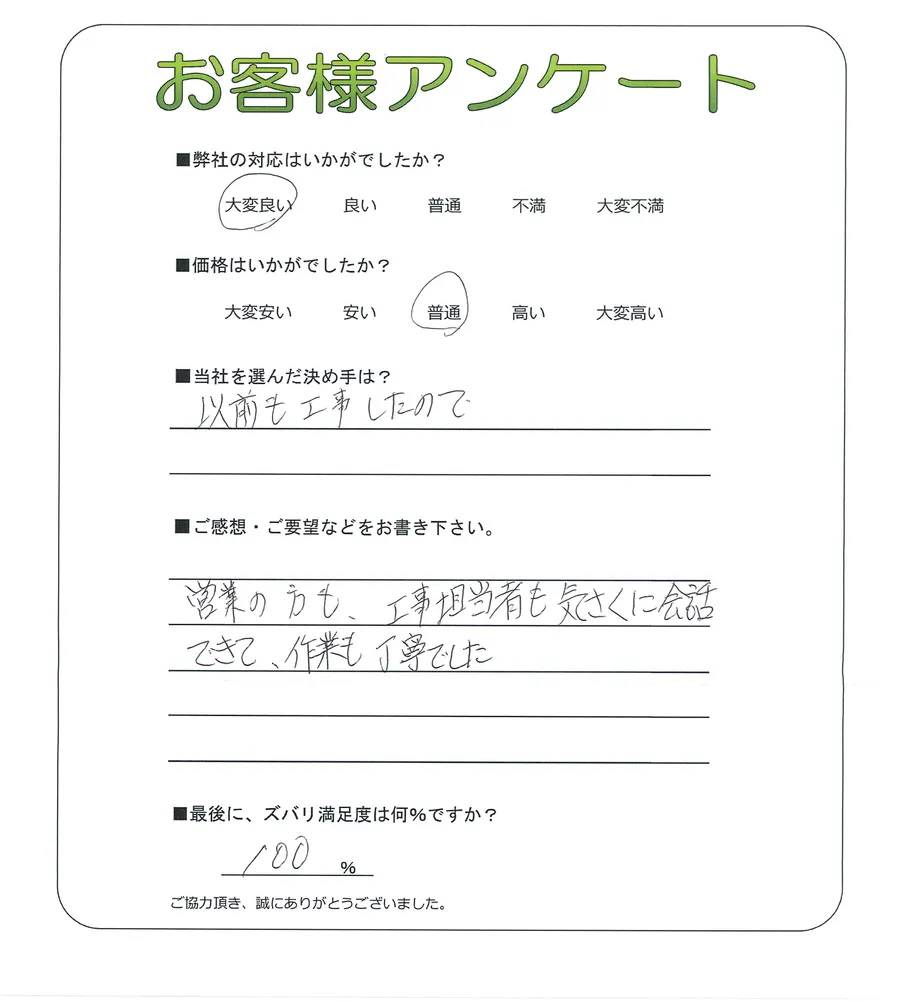 お客様アンケート
■弊社の対応はいかがでしたか？
大変良い 良い 普通 不満 大変不満
■価格はいかがでしたか？
大変安い 安い 普通 高い 大変高い
■当社を選んだ決め手は？
以前も工事したので
■ご感想・ご要望などをお書き下さい。
営業の方も、工事担当者も気さくに会話
できて、作業も丁寧でした
■最後に、ズバリ満足度は何％ですか？
100 %
ご協力頂き、誠にありがとうございました。